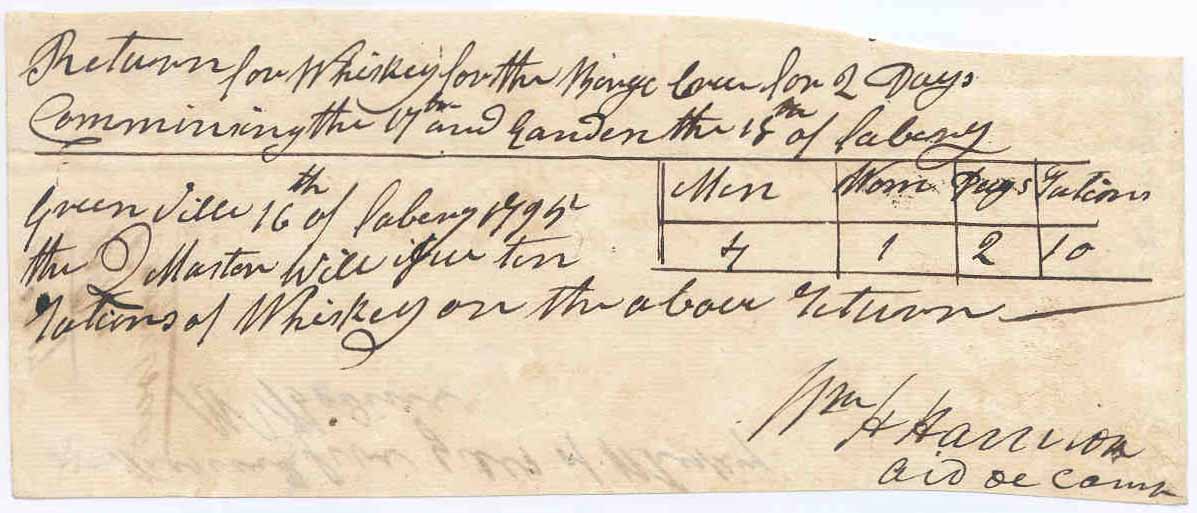 Return for Whiskey for the Barge Crew for 2 Days
Commensing the 17th and Enden the 18th of Fabery
Men Wom Days Rations
4 1 2 10
Green Ville 16th of Fabery 1795
the Q Master will isue ten
Rations of Whiskey on the above Return
Wm H Harrison
aid de camp